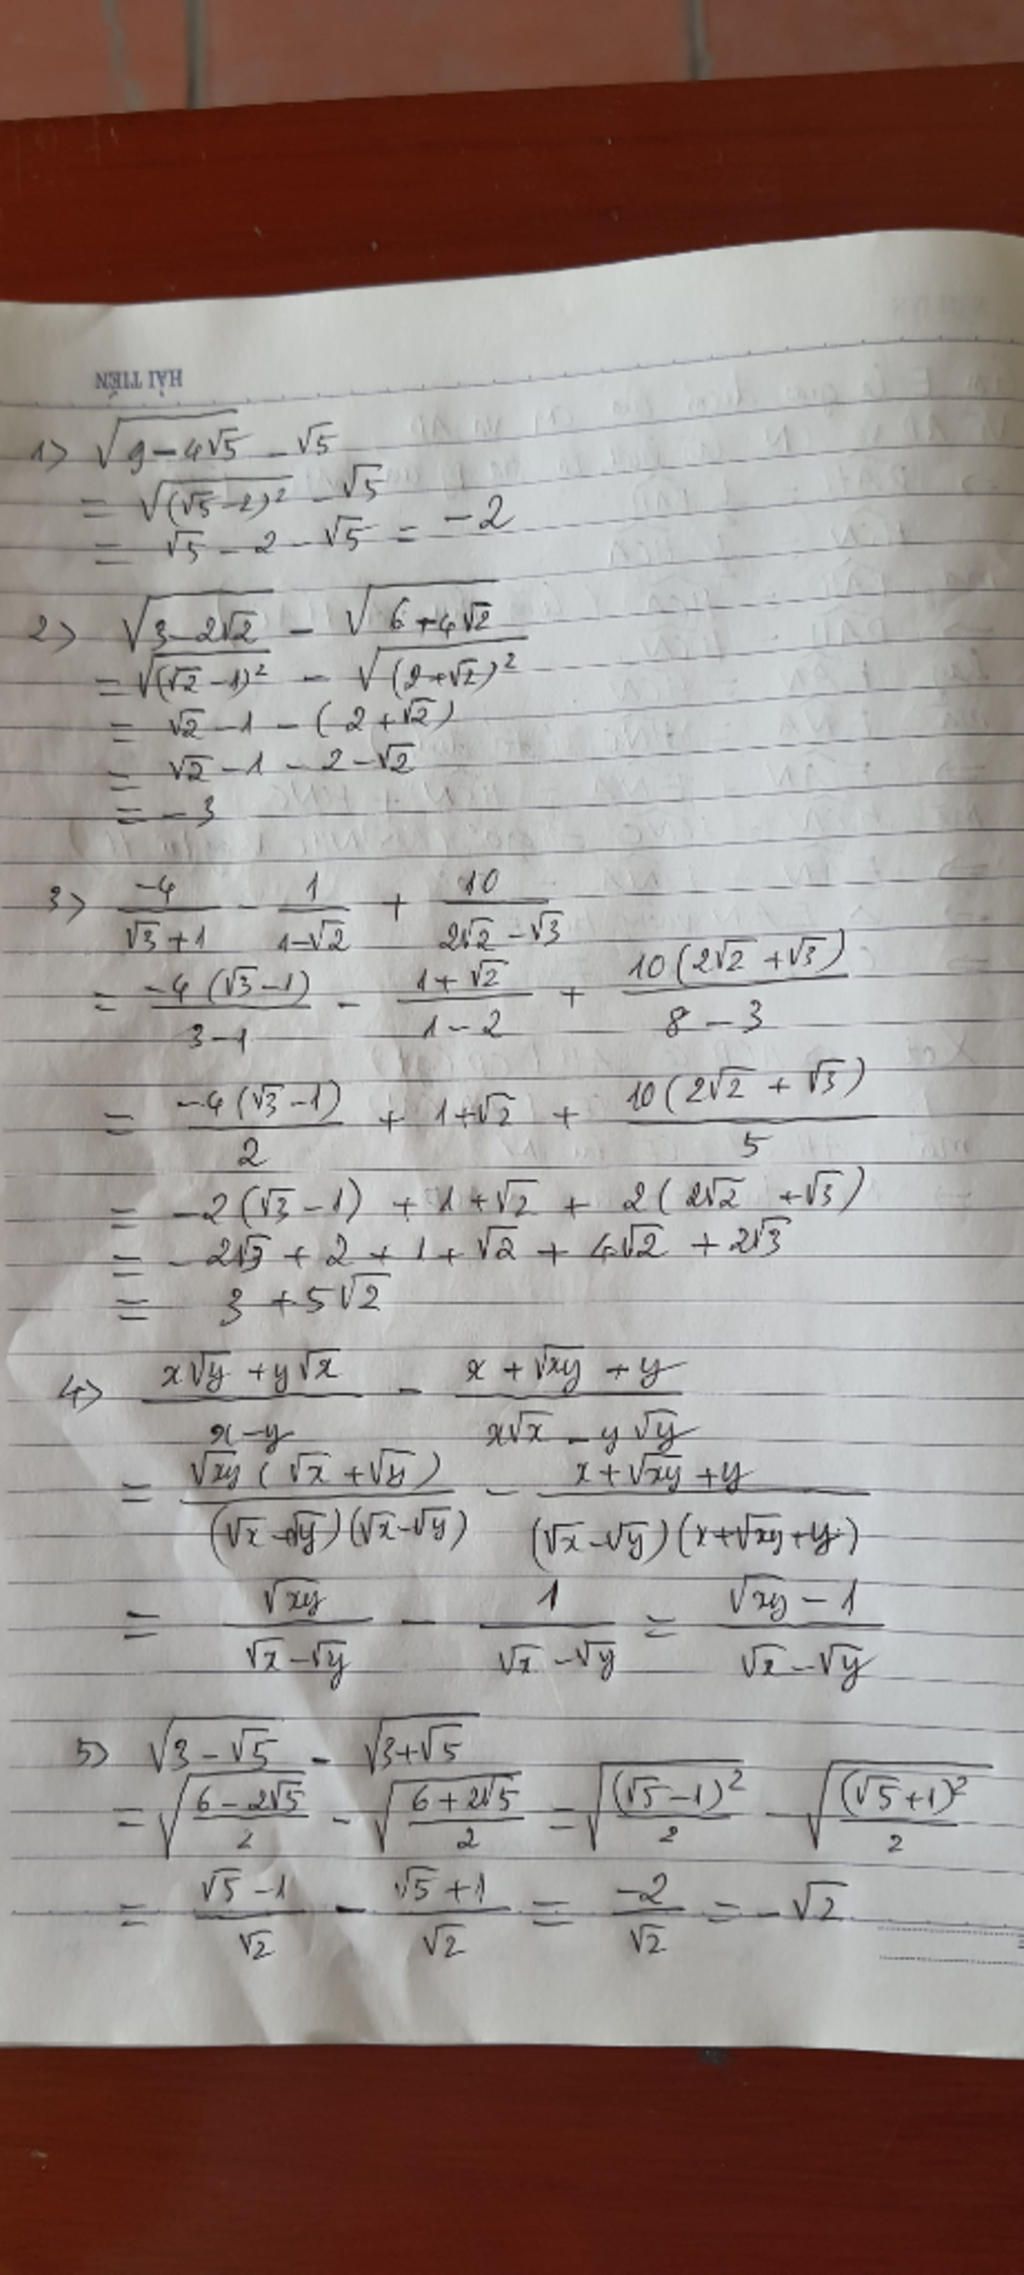 HẢI TIẾN
1> √(9-4√5) - √5
= √((√5-2)²) - √5
= √5 - 2 - √5 = -2
2> √(3-2√2) - √(6+4√2)
= √((√2-1)²) - √((2+√2)²)
= √2 - 1 - (2+√2)
= √2 - 1 - 2 - √2
= -3
3> -4/(√3+1) - 1/(1-√2) + 10/(2√2-√3)
= -4(√3-1)/(3-1) - (1+√2)/(1-2) + 10(2√2+√3)/(8-3)
= -4(√3-1)/2 + 1+√2 + 10(2√2+√3)/5
= -2(√3-1) + 1+√2 + 2(2√2+√3)
= -2√3 + 2 + 1 + √2 + 4√2 + 2√3
= 3 + 5√2
4> (x√y + y√x)/(x-y) - (x+√xy+y)/(x√x - y√y)
= √xy(√x+√y)/((√x+√y)(√x-√y)) - (x+√xy+y)/((√x-√y)(x+√xy+y))
= √xy/(√x-√y) - 1/(√x-√y) = (√xy-1)/(√x-√y)
5> √(3-√5) - √(3+√5)
= √((6-2√5)/2) - √((6+2√5)/2) = √((√5-1)²/2) - √((√5+1)²/2)
= (√5-1)/√2 - (√5+1)/√2 = -2/√2 = -√2